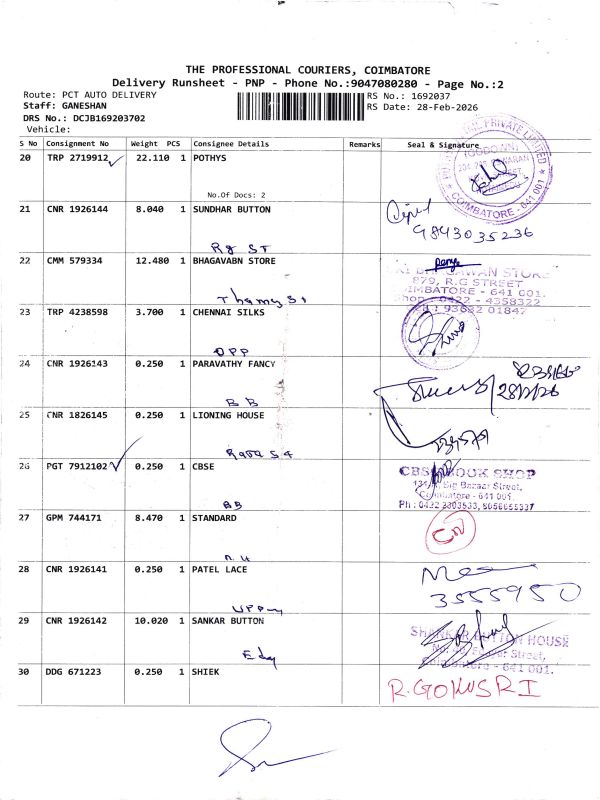 THE PROFESSIONAL COURIERS, COIMBATORE
Delivery Runsheet - PNP - Phone No.:9047080280 - Page No.:2
Route: PCT AUTO DELIVERY
RS No.: 1692037
Staff: GANESHAN
RS Date: 28-Feb-2026
DRS No.: DCJB169203702
Vehicle:
S No Consignment No Weight PCS Consignee Details Remarks Seal & Signature
20 TRP 2719912 22.110 1 POTHYS
No.Of Docs: 2
PRIVATE LIMITED
COIMBATORE - 641 001
21 CNR 1926144 8.040 1 SUNDHAR BUTTON
9843035236
Rg ST
22 CMM 579334 12.480 1 BHAGAVABN STORE
BHAGAWAN STORE
879, R.G STREET
COIMBATORE - 641 001.
Phon : 0422 - 4358322
: 93632 01847
23 TRP 4238598 3.700 1 CHENNAI SILKS
OPP
24 CNR 1926143 0.250 1 PARAVATHY FANCY
28/2/26
BB
25 CNR 1826145 0.250 1 LIONING HOUSE
26 PGT 7912102 0.250 1 CBSE
CBS BOOK SHOP
Big Bazaar Street,
Coimbatore - 641 001.
BB
27 GPM 744171 8.470 1 STANDARD
28 CNR 1926141 0.250 1 PATEL LACE
3555950
29 CNR 1926142 10.020 1 SANKAR BUTTON
SHANKAR BUTTON HOUSE
Street,
Coimbatore - 641 001.
30 DDG 671223 0.250 1 SHIEK
R.GOKUSRI